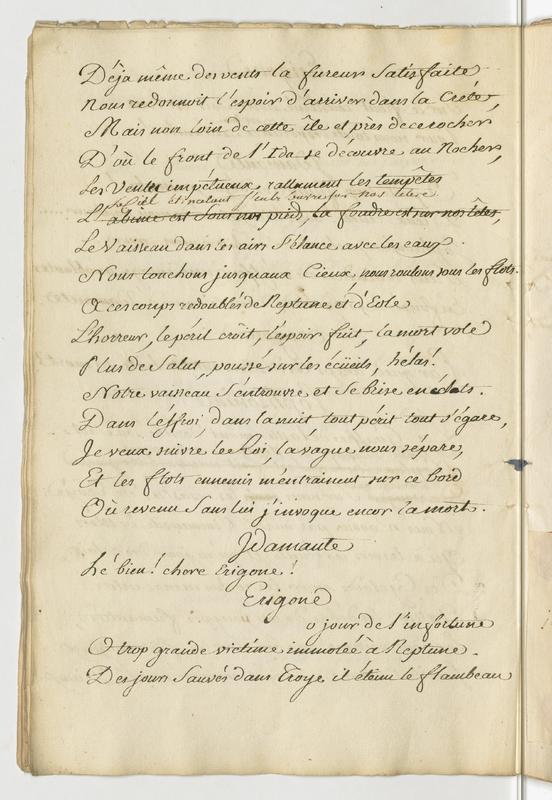 Dêja même des vents la fureur Satisfaite
Nous redonnoit l'espoir d'arriver dans la Crête,
Mais non loin de cette île et près de ce rocher
D'où le front de l'Ida se découvre au Nocher,
Les Vents impetueux rallument les tempêtes
Le Ciel Etincelant S'entr'ouvre sur nos têtes
L'abîme est sous nos pieds, la foudre est sur nos têtes,
Le Vaisseau dans les airs S'élance avec les eaux.
Nous touchons jusquaux Cieux, nous roulons sous les flots.
A ces coups redoublés de Neptune et d'Eole
L'horreur, le péril croît, l'espoir fuit, la mort vole
Plus de Salut, poussé sur les écüeils, hélas!
Notre vaisseau S'entrouvre et Se brise en éclats.
Dans l'éffroi, dans la nuit, tout périt tout s'égare,
Je veux suivre le Roi, la vague nous sépare,
Et les flots ennemis m'entrainent sur ce bord
Où revenu Sans lui j'invoque encor la mort.
Idamante
hé bien! chere Erigone!
Erigone
o jour de l'infortune
O trop grande victime immolée à Neptune.
Des jours Sauvés dans Troye il éteint le flambeau